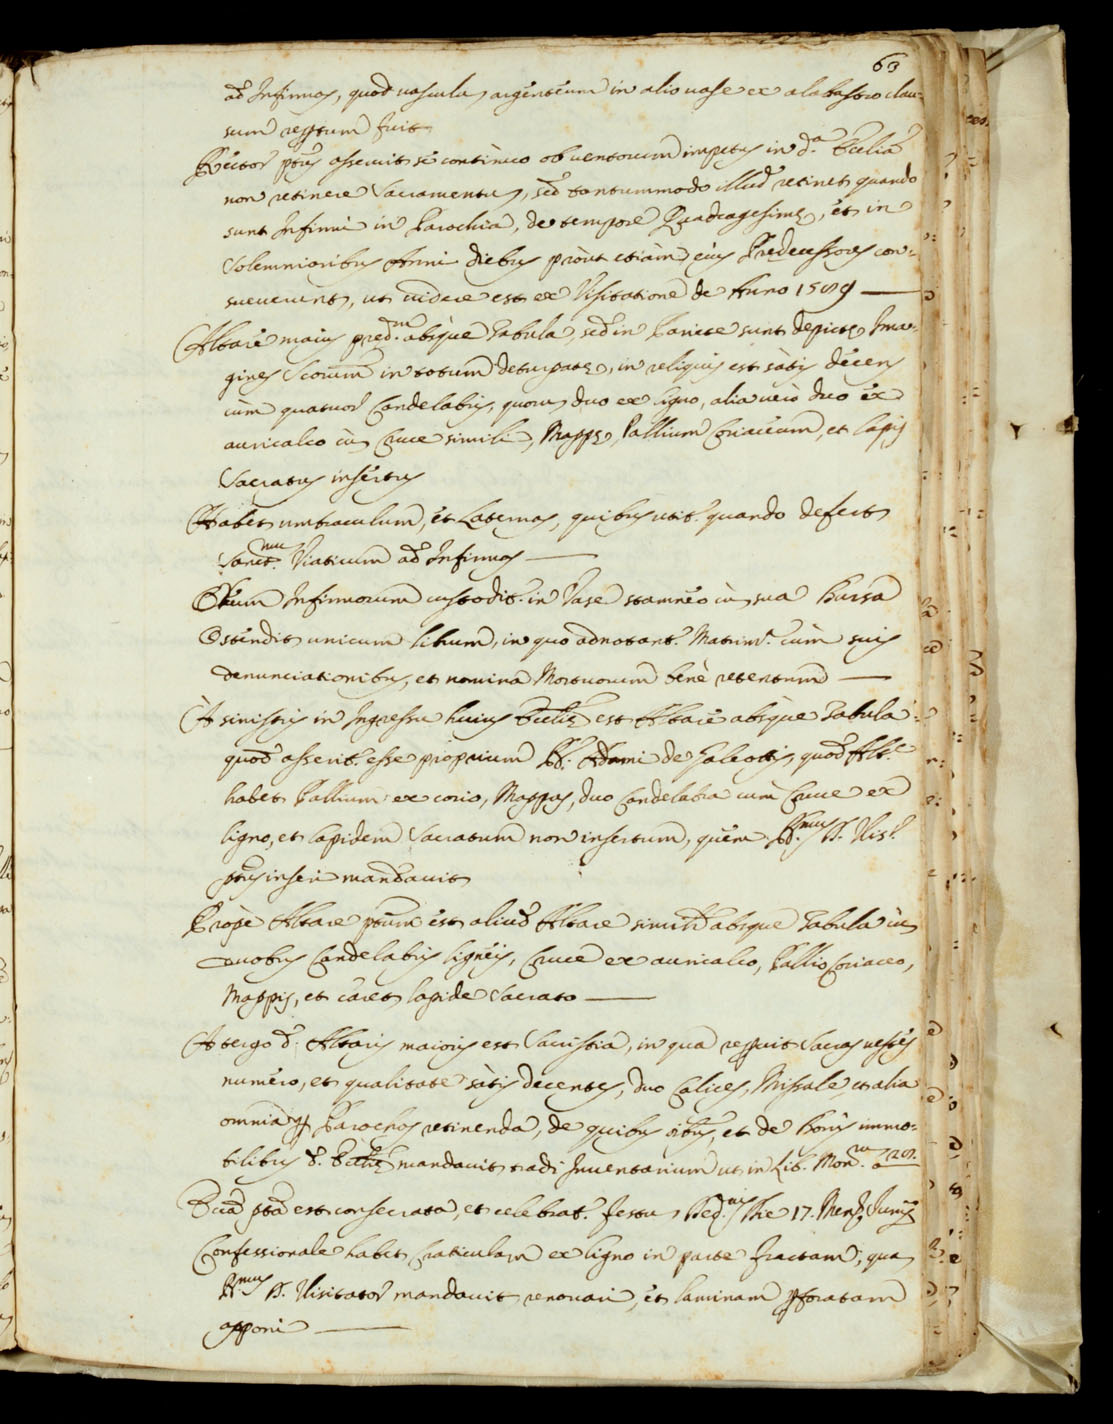 63
ad Infirmos, quod vasculu argenteum in alio vase ex alabastro clau-
sum reptum fuit
Rector ptus asseruit se continuo ob ventorum impetus in d.a Ecclia
non retinere Sacramentu, sed tantummodo illud retinet quando
sunt Infirmi in Parochia, de tempore Quadragesime, et in
solemnioribus Anni diebus prout etiam eius Predecessores con-
sueverunt, ut videre est ex Visitatione de Anno 1589
Altare maius pred.m absque Tabula, sed in Pariete sunt depicte Ima-
gines Scorum in totum deturpate, in reliquis est satis decens
cum quatuor Candelabris, quoru duo ex ligno, alia vero duo ex
auricalco cu Cruce simili, Mappe, Pallium Coriaceum, et lapis
Sacratus insertus
Habet umbraculum, et Laternas, quibus utit. quando defert
Sanct.mu Viaticum ad Infirmos
Oleum Infirmorum custodit. in Vase stamneo cu sua Bursa
Ostendit unicum librum, in quo adnotant. Matrim.a cum suis
denunciationibus, et nomina Mortuorum bene retentum
A sinistris in Ingressu huius Ecclie est Altare absque Tabula
quod asserit. esse proprium Adami de Galeottis, quod Alt.e
habet Pallium ex corio, Mappas, duo Candelabra cum Cruce ex
ligno, et lapidem Sacratum non insertum, quem R.mus D. Vis.r
ptus inseri mandavit
Prope Altare ptum est aliud Altare simili absque Tabula cu
duobus Candelabris ligneis, Cruce ex auricalco, Pallio Coriaceo,
Mappis, et caret lapide Sacrato
A tergo d. Altaris maioris est Sacristia, in qua reperit Sacras vestes
numero, et qualitate satis decentes, duo Calices, Missale, et alia
omnia p Parochos retinenda, de quibus oibus, et de Bonis immo-
bilibus d. Ecclie mandavit tradi Inventarium ut in Lib. Mon.
Ecclia pta est consecrata, et celebrat. festu Ded.nis Die 17. Mensis Junij
Confessionale habet Craticulam ex ligno in parte fractam, qua
R.mus D. Visitator mandavit renovari, et laminam pforatam
apponi